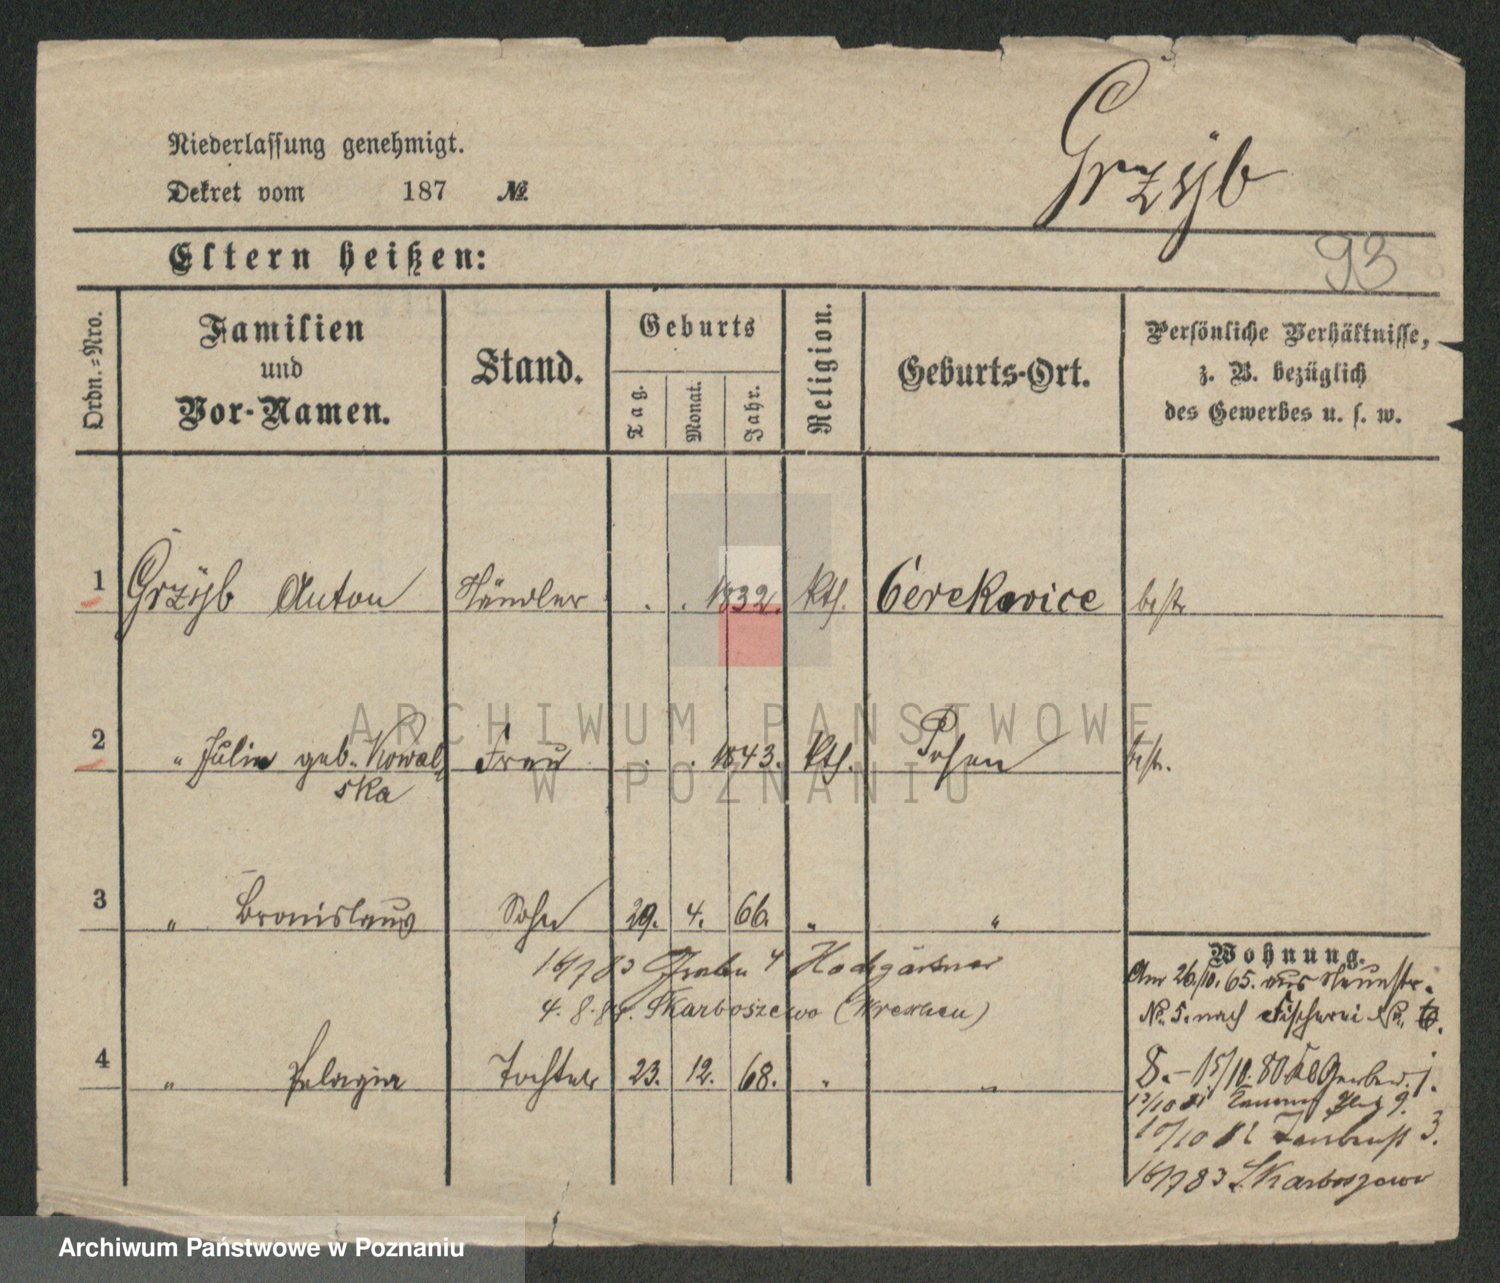 Grzyb
Niederlassung genehmigt.
Dekret vom 187 №
93
Eltern heißen:
Ordn.-Nro.
Familien
und
Vor-Namen.
Stand.
Geburts
Tag.
Monat.
Jahr.
Religion.
Geburts-Ort.
Persönliche Verhältnisse,
z. B. bezüglich
des Gewerbes u. s. w.
1 Grzyb Anton Händler . . 1832. kth. Cerekwice bestr
2 " Julia geb. Kowal= Frau . . 1843. kth. Posen bestr.
ska
3 " Bronislaus Sohn 29. 4. 66. " "
16/7 83 Graben 4
4. 8. Skarboszewo (Wreschen)
4 " Pelagia Tochter 23. 12. 68. " "
Wohnung.
Am 26/10. 65. aus Neuestr.
No. 5. nach Fischerei No. 6.
8. – 15/10 80 Kl Gerber.
17/10 81 9.
10/10 82 3.
16/7 83 Skarboszewo
ARCHIWUM PAŃSTWOWE
W POZNANIU
Archiwum Państwowe w Poznaniu